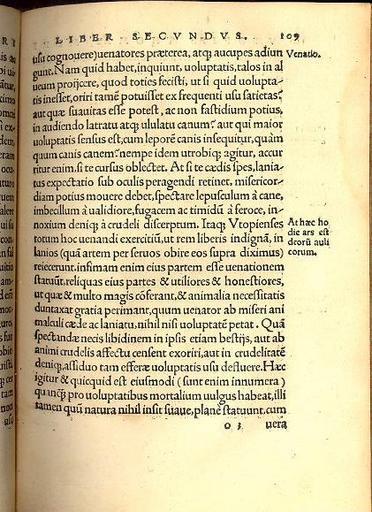 LIBER SECVNDVS. 109
usu cognouere) uenatores præterea, atq; aucupes adiun
Venatio.
gunt. Nam quid habet, inquiunt, uoluptatis, talos in al
ueum proijcere, quod toties fecisti, ut si quid uolupta-
tis inesset, oriri tamen potuisset ex frequenti usu satietas?
aut quæ suauitas esse potest, ac non fastidium potius,
in audiendo latratu atq; ululatu canum? aut qui maior
uoluptatis sensus est, cum leporē canis insequitur, quàm
quum canis canem? nempe idem utrobiq; agitur, accur
ritur enim, si te cursus oblectet. At si te cædis spes, lania-
tus expectatio sub oculis peragendi retinet, misericor-
diam potius mouere debet, spectare lepusculum à cane,
imbecillum à ualidiore, fugacem ac timidū à feroce, in-
noxium deniq; à crudeli discerptum. Itaq; Vtopienses
At hæc ho
die ars est
deorū auli
corum.
totum hoc uenandi exercitiū, ut rem liberis indignā, in
lanios (quā artem per seruos obire eos supra diximus)
reiecerunt. infimam enim eius partem esse uenationem
statuūt. reliquas eius partes & utiliores & honestiores,
ut quæ & multo magis cōferant, & animalia necessitatis
duntaxat gratia perimant, quum uenator ab miseri ani
malculi cæde ac laniatu, nihil nisi uoluptatē petat. Quā
spectandæ necis libidinem in ipsis etiam bestijs, aut ab
animi crudelis affectu censent exoriri, aut in crudelitatē
deniq;, assiduo tam efferæ uoluptatis usu defluere. Hæc
igitur & quicquid est eiusmodi (sunt enim innumera)
quanq̄ pro uoluptatibus mortalium uulgus habeat, illi
tamen quū natura nihil insit suaue, plane statuunt, cum
o 3 uera